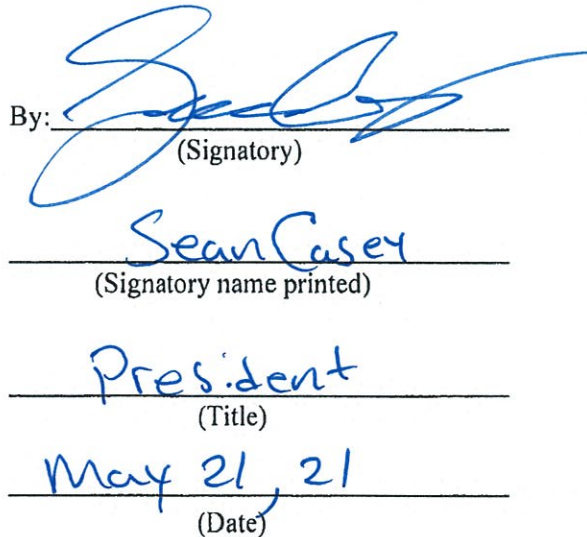 By:
(Signatory)
Sean Casey
(Signatory name printed)
President
(Title)
May 21, 21
(Date)